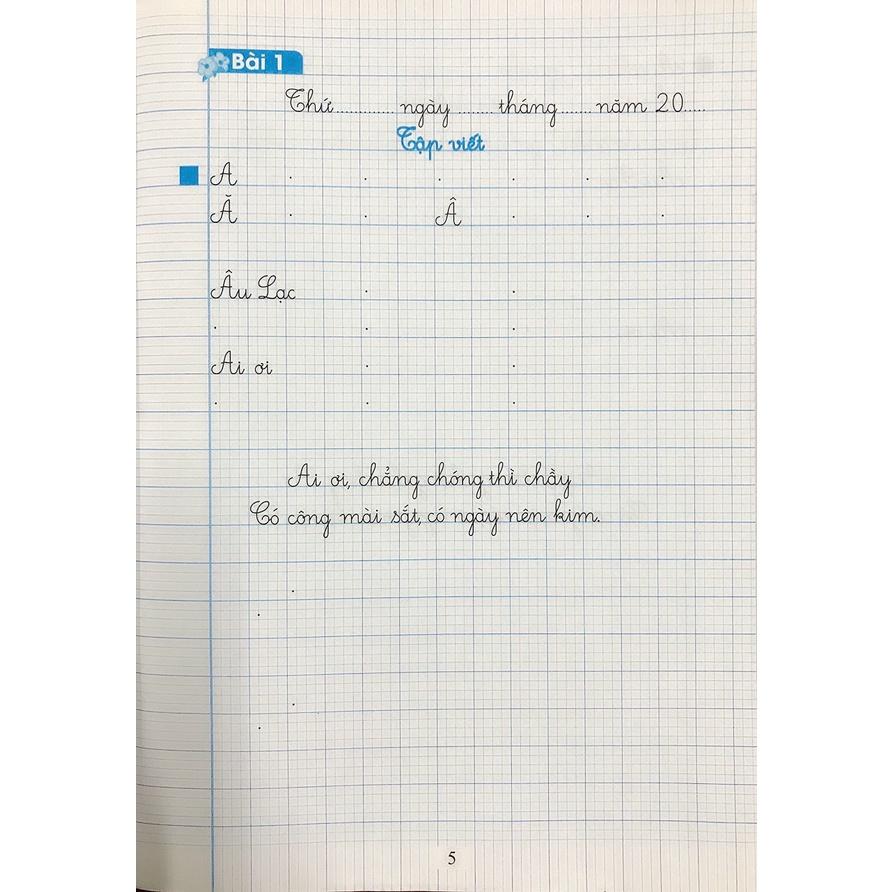 Bài 1
Thứ.............. ngày ......... tháng........ năm 20.....
Tập viết
A . . . . . .
Ă . . Â . . .
Âu Lạc . .
. . .
Ai ơi . .
. . .
Ai ơi, chẳng chóng thì chầy
Có công mài sắt, có ngày nên kim.
.
.
.
.
5